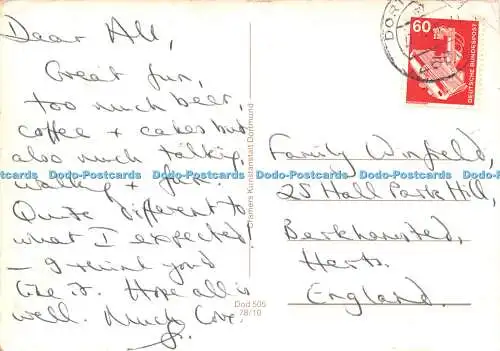 Dear All,
Great fun,
too much beer,
coffee + cakes but
also much talking,
walking + fun.
Quite different to
what I expected!
— I think you'd
like it. Hope all is
well. Much Love.
Cramers Kunstanstalt Dortmund
Dod 505
78/10
60
DEUTSCHE BUNDESPOST
DORT
Family Winfield,
25 Hall Park Hill,
Berkhamsted,
Herts.
England.
Postcards Data-Postcards Data-Postcards Data-Postcards Data-Postcards